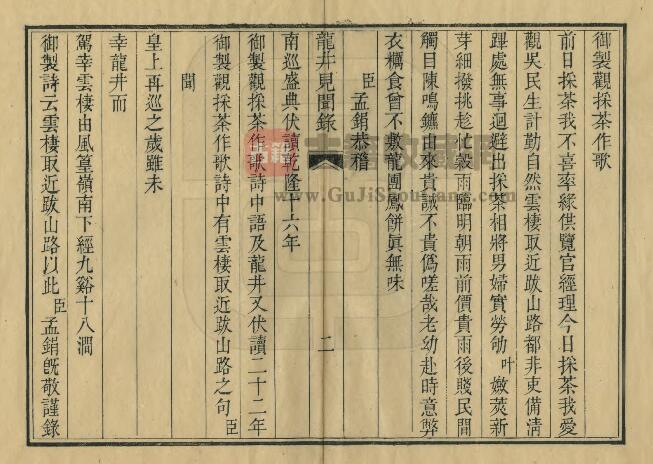 御製觀採茶作歌
前日採茶我不喜率緣供覽官經理今日採茶我愛
觀吳民生計勤自然雲棲取近跋山路都非吏備清
蹕處無事迴避出採茶相將男婦實勞劬叶嫩莢新
芽細撥挑趁忙穀雨臨明朝雨前價貴雨後賤民間
觸目陳鳴鑣由來貴誠不貴僞嗟哉老幼赴時意弊
衣糲食曾不敷龍團鳳餅眞無味
臣孟鋗恭稽
龍井見聞錄
二
南巡盛典伏讀乾隆十六年
御製觀採茶作歌詩中語及龍井又伏讀二十二年
御製觀採茶作歌詩中有雲棲取近跋山路之句臣
聞
皇上再巡之歲雖未
幸龍井而
駕幸雲棲由風篁嶺南下經九谿十八澗
御製詩云雲棲取近跋山路以此臣孟鋗旣敬謹錄
古籍收藏网
www.GuJiShouCang.com